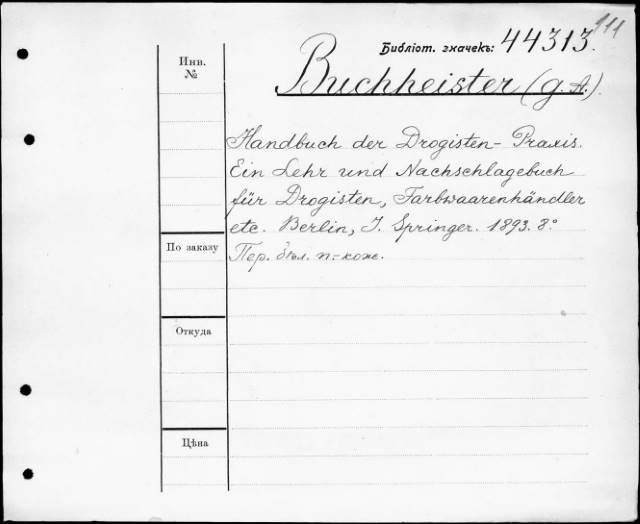 111
Библіот. значекъ: 44313.
Инв.
№
Buchheister (G. A.).
Handbuch der Drogisten-Praxis.
Ein Lehr und Nachschlagebuch
für Drogisten, Farbwaarenhändler
etc. Berlin, J. Springer. 1893. 8º
По заказу
Пер. бѣл. п.-кож.
Откуда
Цѣна